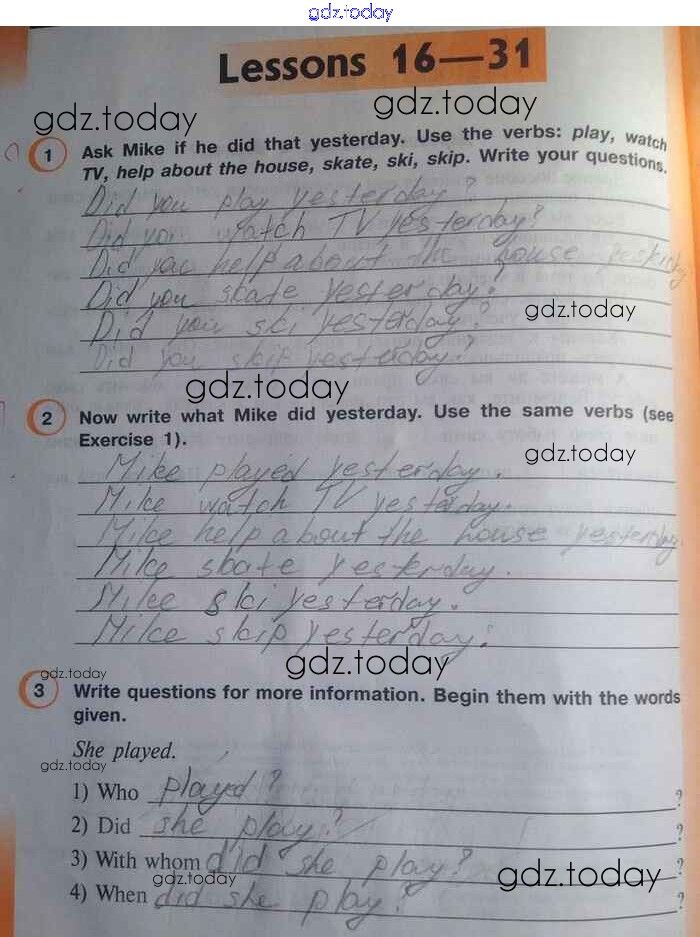 gdz.today
Lessons 16—31
gdz.today
gdz.today
1 Ask Mike if he did that yesterday. Use the verbs: play, watch
TV, help about the house, skate, ski, skip. Write your questions.
Did you play yesterday?
Did you watch TV yesterday?
Did you help about the house
Did you skate yesterday?
gdz.today
Did you ski yesterday?
Did you skip yesterday?
gdz.today
2 Now write what Mike did yesterday. Use the same verbs (see
Exercise 1).
gdz.today
Mike played yesterday.
Mike watch TV yesterday.
Mike help about the house yesterday
Mike skate yesterday.
Mike ski yesterday.
Mike skip yesterday.
gdz.today
gdz.today
3 Write questions for more information. Begin them with the words
given.
She played.
gdz.today
1) Who played? ?
2) Did she play? ?
3) With whom did she play? ?
gdz.today
gdz.today
4) When did she play? ?